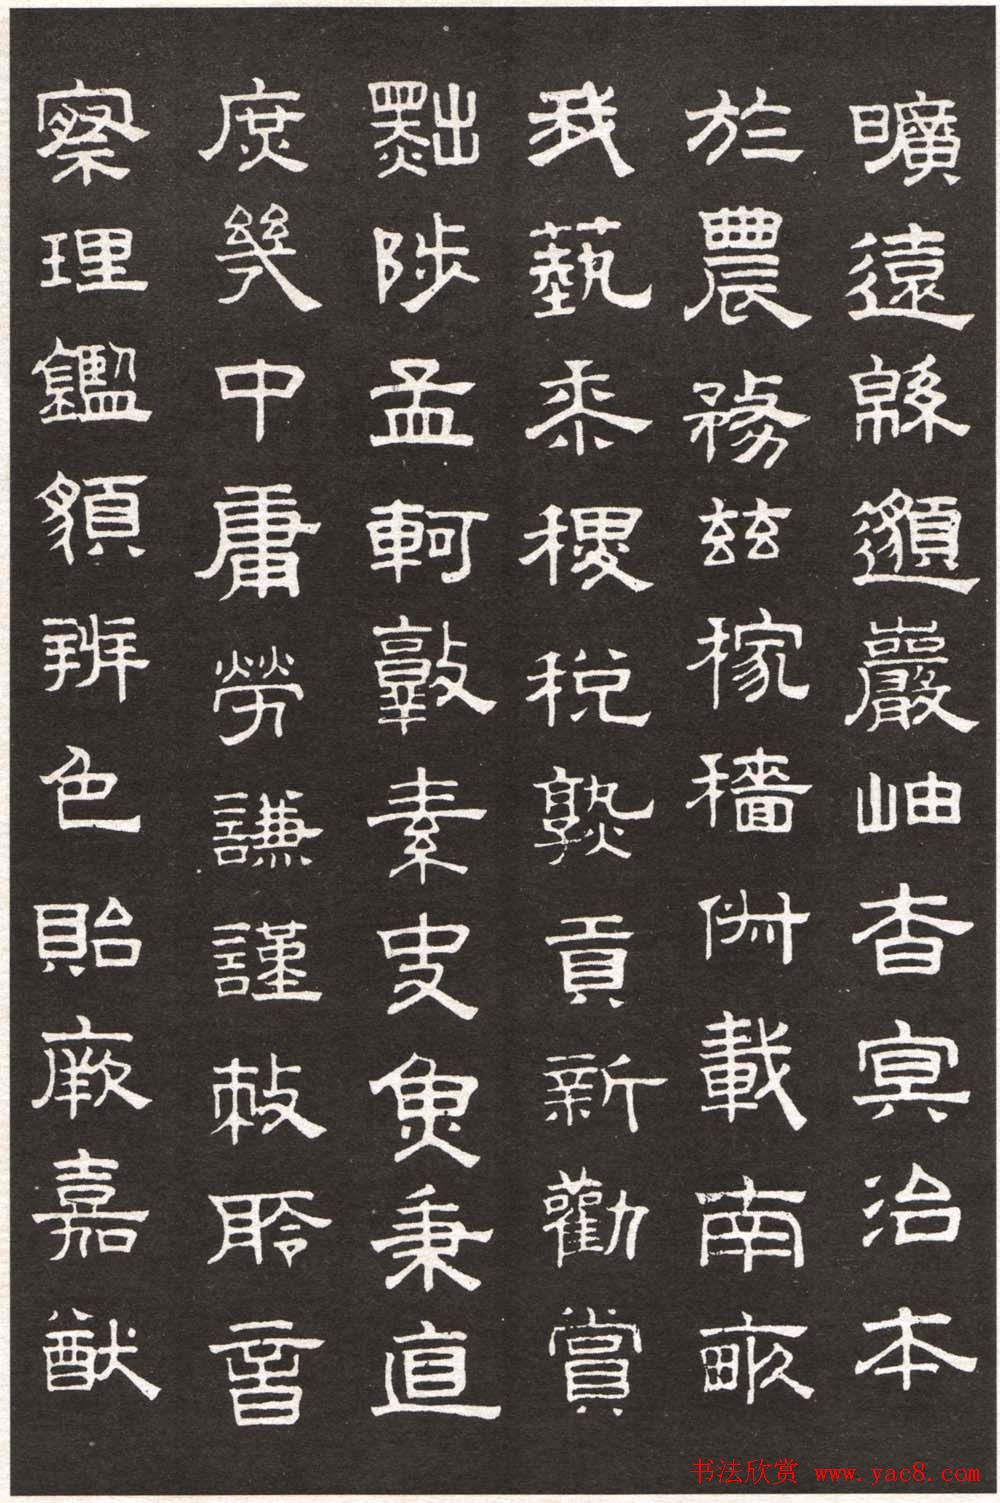 曠遠緜邈巖岫杳冥治本
於農務兹稼穡俶載南畝
我藝黍稷稅熟貢新勸賞
黜陟孟軻敦素史魚秉直
庶幾中庸勞謙謹敕聆音
察理鑑貌辨色貽厥嘉猷
书法欣赏 www.yac8.com